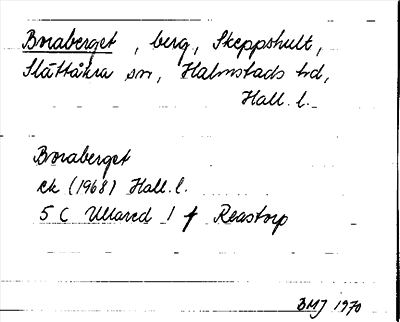 Boraberget, berg, Skeppshult,
Slättåkra sn, Halmstads hd,
Hall. l.
Boraberget
ek (1968) Hall. l.
5 C Ullared 1 f Reastorp
BMJ 1970